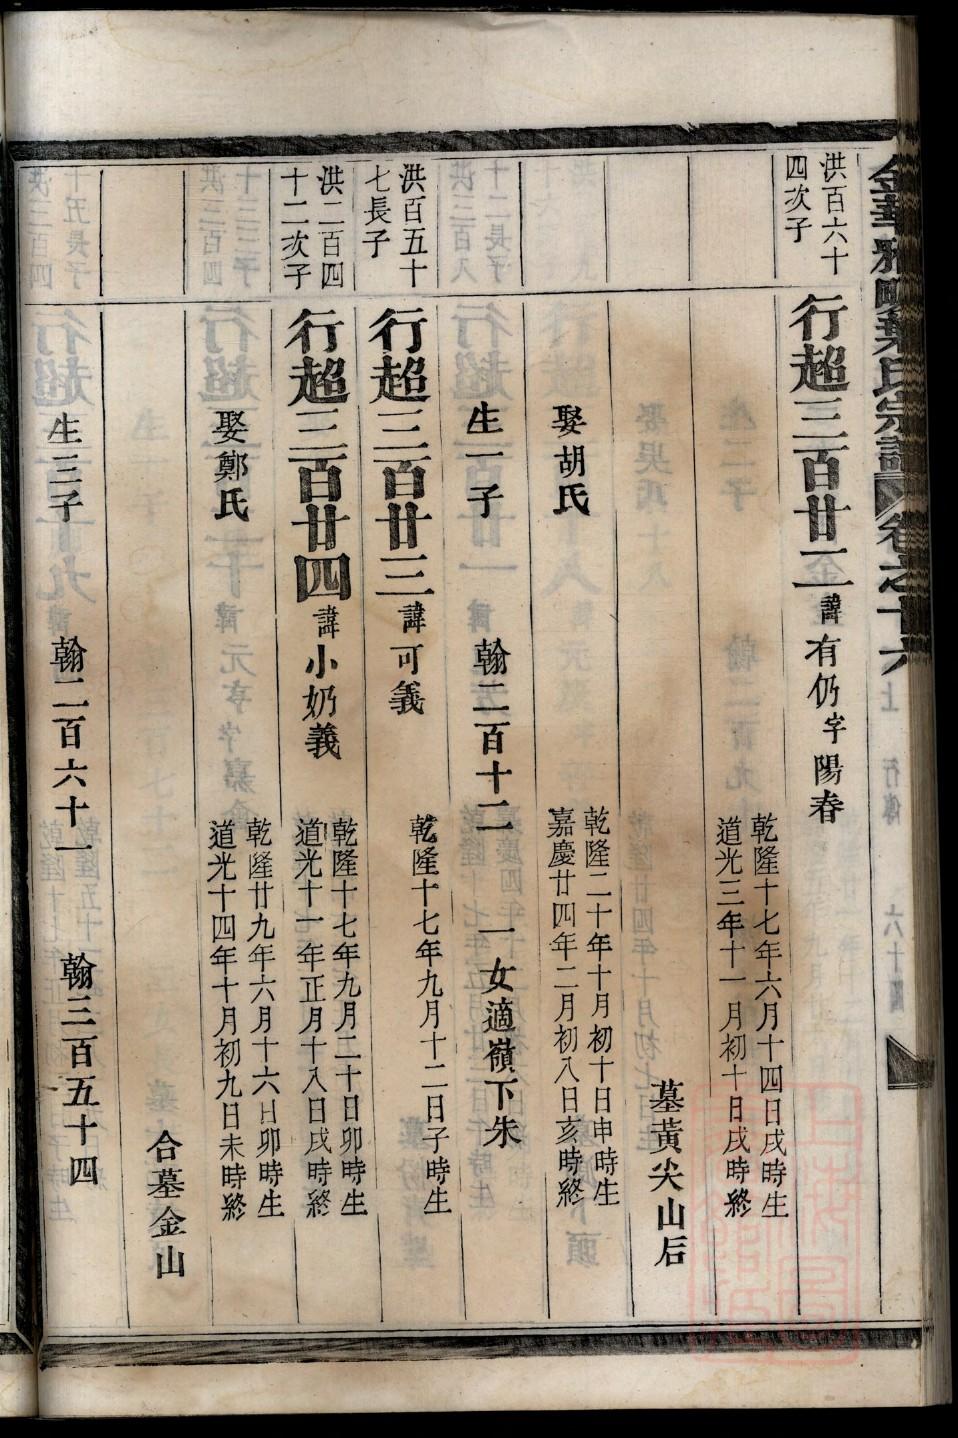 金華雅畈葉氏宗譜 卷之十六 上 行傳 六十
洪百六十
四次子
行超三百廿二 諱有仍字陽春
乾隆十七年六月十四日戌時生
道光三年十一月初十日戌時終
墓黃尖山后
娶胡氏
乾隆二十年十月初十日申時生
嘉慶廿四年二月初八日亥時終
生一子 翰二百十二 一女適嶺下朱
洪百五十
七長子
行超三百廿三 諱可義
乾隆十七年九月十二日子時生
洪二百四
十二次子
行超三百廿四 諱小奶義
乾隆十七年九月二十日卯時生
道光十一年正月十八日戌時終
娶鄭氏
乾隆廿九年六月十六日卯時生
道光十四年十月初九日未時終
合墓金山
生三子 翰二百六十一 翰三百五十四